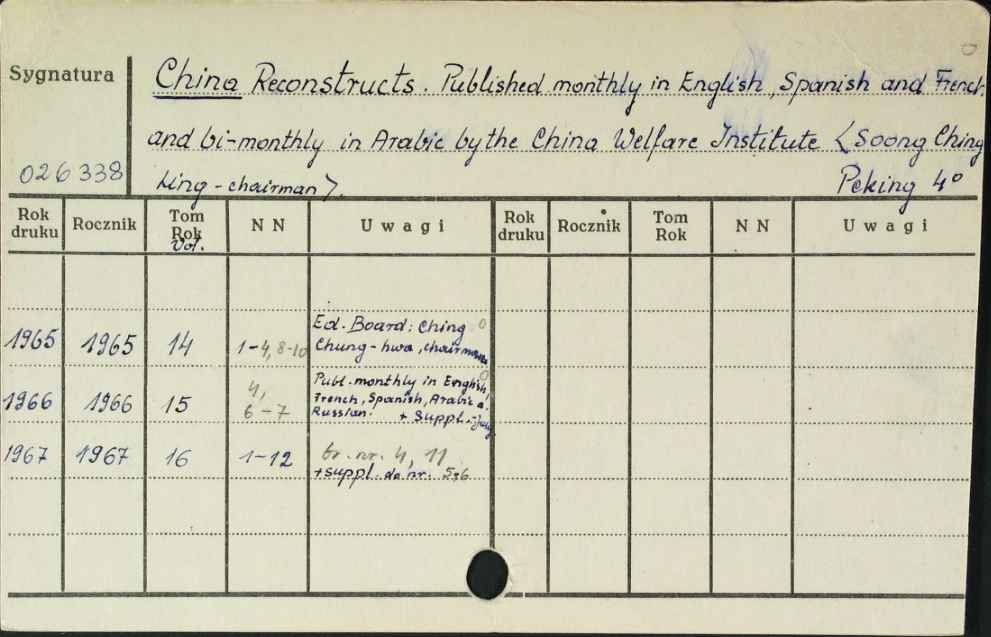 Sygnatura
China Reconstructs. Published monthly in English, Spanish and French
and bi-monthly in Arabic by the China Welfare Institute <Soong Ching
026338
Ling - chairman>.
Peking 4°
Rok druku Rocznik Tom Rok Vol. NN Uwagi Rok druku Rocznik Tom Rok NN Uwagi
1965 1965 14 1-4, 8-10 Ed. Board: Ching Chung-hwa, chairman
1966 1966 15 4, 6-7 Publ. monthly in English, French, Spanish, Arabic a. Russian. + Suppl.-
1967 1967 16 1-12 br. nr. 4, 11 + suppl. do nr. 5i6